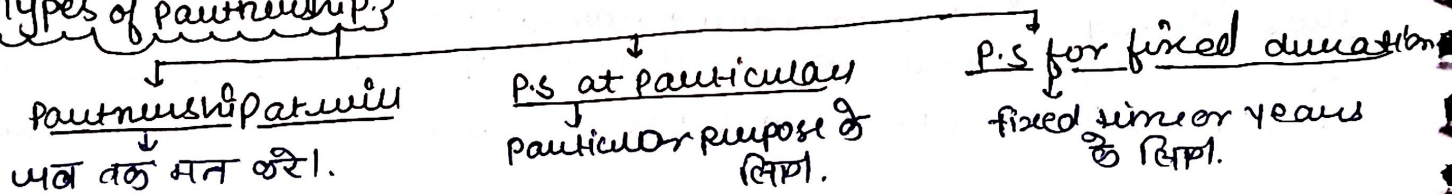 Types of Partnership:}
Partnership at will
जब तक मन करे।
P.S at Particular
Particular purpose के
लिए.
P.S for fixed duration
fixed time or years
के लिए.